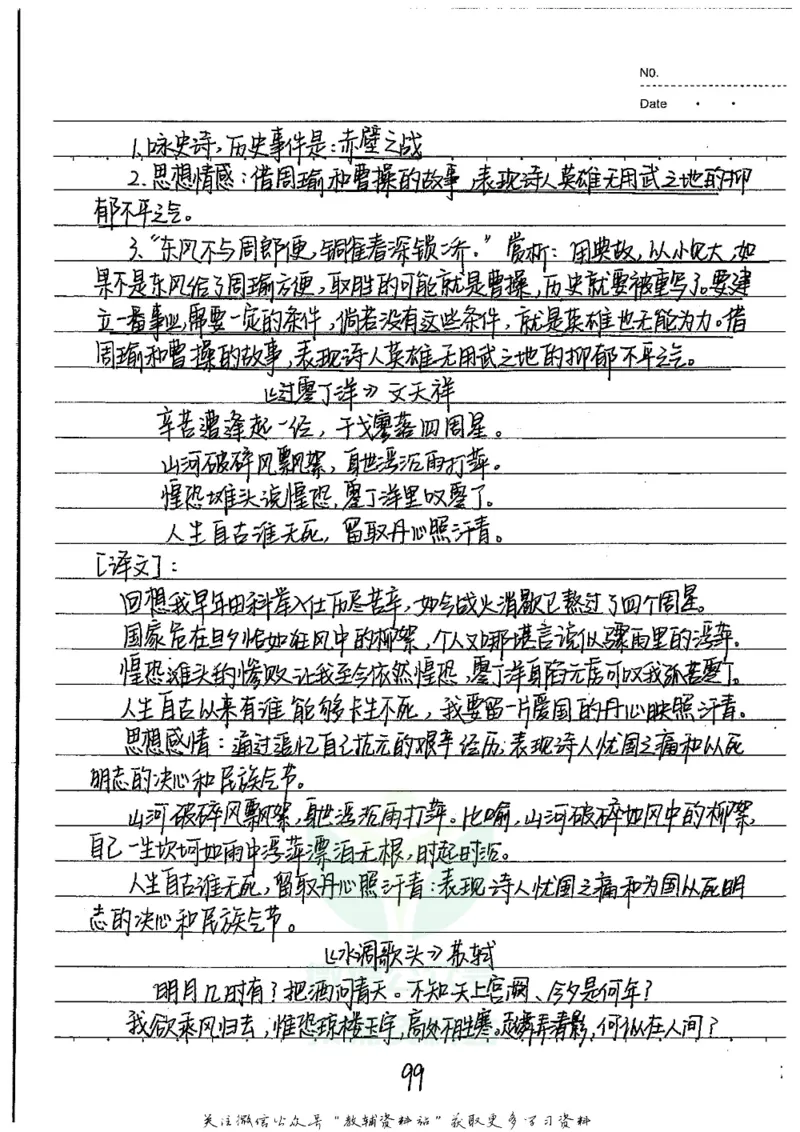 NO.
Date
1.咏史诗,历史事件是:赤壁之战
2.思想情感:借周瑜和曹操的故事,表现诗人英雄无用武之地的抑
郁不平之气。
3.“东风不与周郎便,铜雀春深锁二乔。”赏析:用典故,以小见大,如
果不是东风给了周瑜方便,取胜的可能就是曹操,历史就要被重写了。要建
立一番事业,需要一定的条件,倘若没有这些条件,就是英雄也无能为力。借
周瑜和曹操的故事,表现诗人英雄无用武之地的抑郁不平之气。
《过零丁洋》文天祥
辛苦遭逢起一经,干戈寥落四周星。
山河破碎风飘絮,身世浮沉雨打萍。
惶恐滩头说惶恐,零丁洋里叹零丁。
人生自古谁无死,留取丹心照汗青。
[译文]:
回想我早年由科举入仕历尽苦辛,如今战火消歇已熬过了四个周星。
国家危在旦夕恰如狂风中的柳絮,个人又哪堪言说似骤雨里的浮萍。
惶恐滩头的惨败让我至今依然惶恐,零丁洋身陷元虏可叹我孤苦零丁。
人生自古以来有谁能够长生不死,我要留一片爱国的丹心映照汗青。
思想感情:通过追忆自己抗元的艰辛经历,表现诗人忧国之痛和以死
明志的决心和民族气节。
山河破碎风飘絮,身世浮沉雨打萍。比喻,山河破碎如风中的柳絮,
自己一生坎坷如雨中浮萍漂泊无根,时起时沉。
人生自古谁无死,留取丹心照汗青:表现诗人忧国之痛和为国以死明
志的决心和民族气节。
《水调歌头》苏轼
明月几时有?把酒问青天。不知天上宫阙、今夕是何年?
我欲乘风归去,惟恐琼楼玉宇,高处不胜寒。起舞弄清影,何似在人间?
99
关注微信公众号“教辅资料站”获取更多学习资料